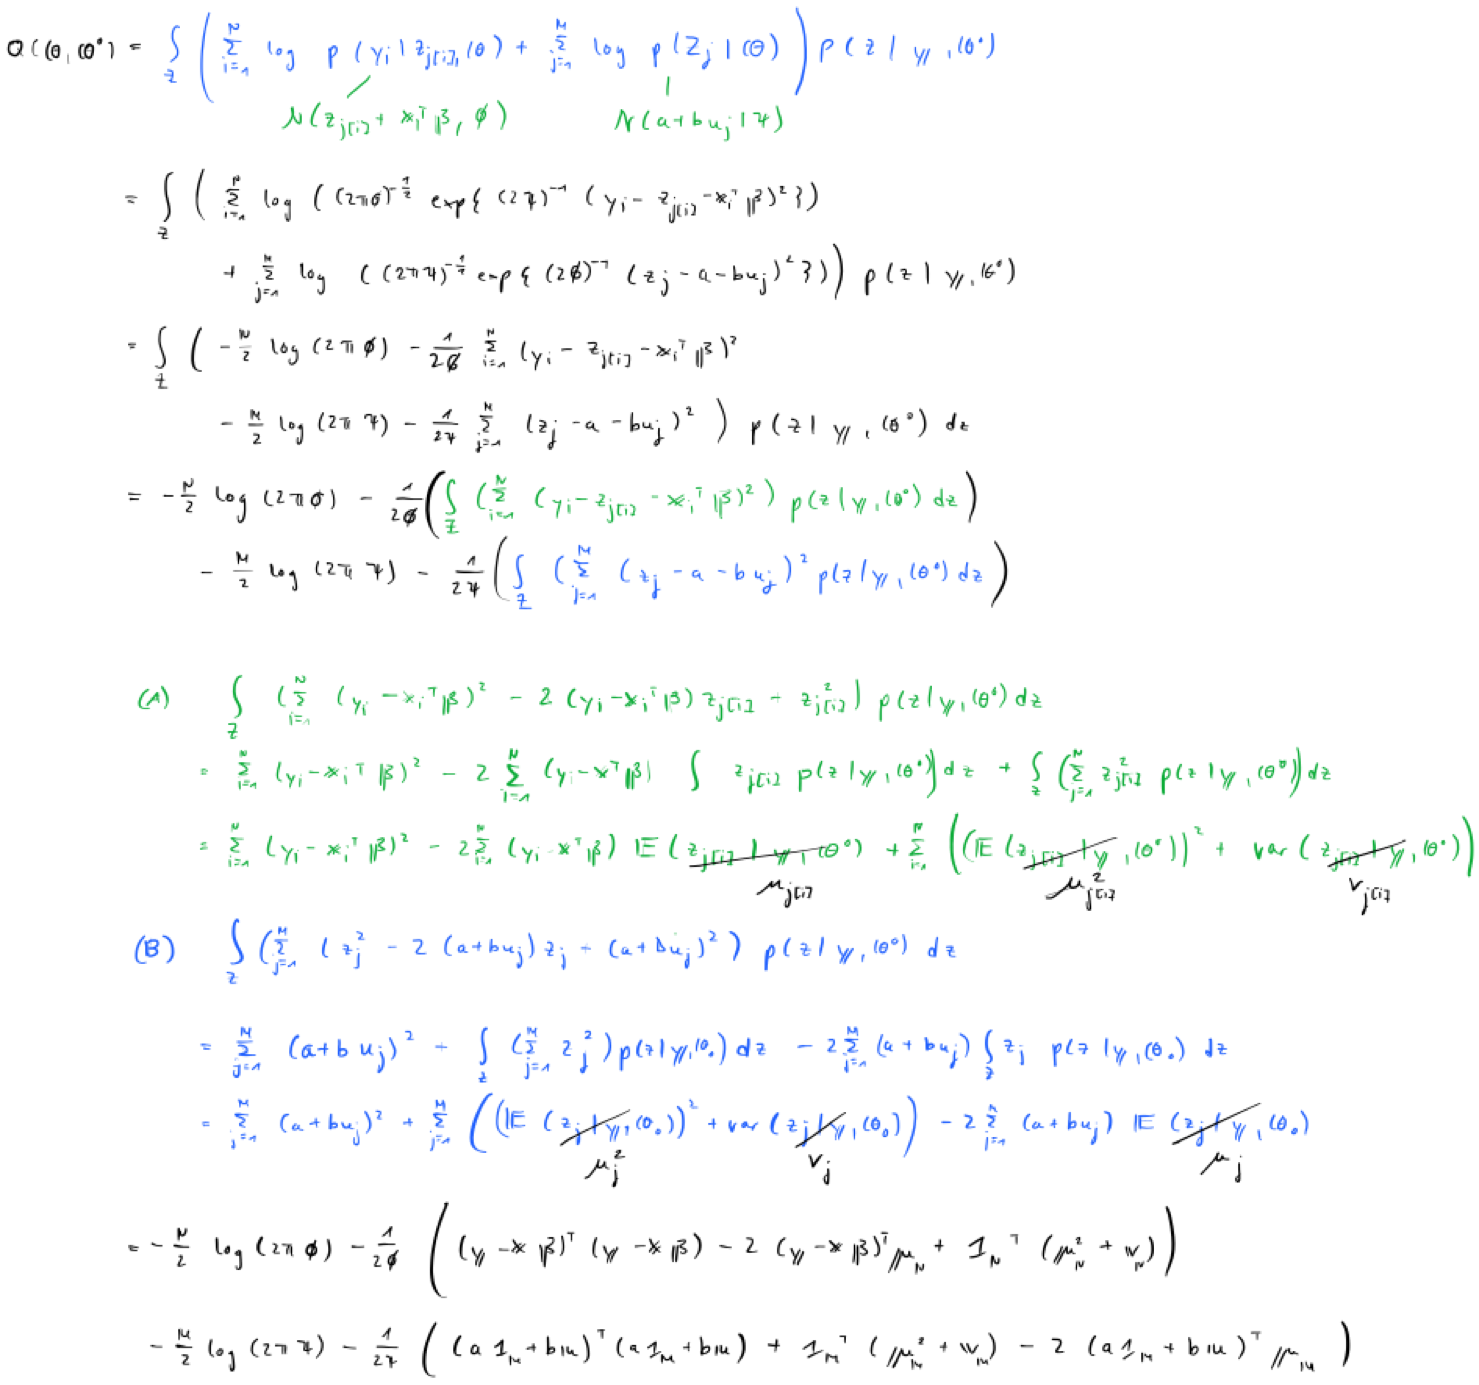 Q(θ, θ°) = ∫_z ( Σ_{i=1}^N log p(y_i | z_{j[i]}, θ) + Σ_{j=1}^M log p(z_j | θ) ) p(z | y, θ°)
N(z_{j[i]} + x_i^T β, ϕ) N(a + b u_j | ψ)
= ∫_z ( Σ_{i=1}^N log ( (2πϕ)^{-1/2} exp{ (2ψ)^{-1} (y_i - z_{j[i]} - x_i^T β)^2 } )
+ Σ_{j=1}^M log ( (2πψ)^{-1/2} exp{ (2ϕ)^{-1} (z_j - a - b u_j)^2 } ) ) p(z | y, θ°)
= ∫_z ( -N/2 log(2πϕ) - 1/2ϕ Σ_{i=1}^N (y_i - z_{j[i]} - x_i^T β)^2
- M/2 log(2πψ) - 1/2ψ Σ_{j=1}^M (z_j - a - b u_j)^2 ) p(z | y, θ°) dz
= -N/2 log(2πϕ) - 1/2ϕ ( ∫_z ( Σ_{i=1}^N (y_i - z_{j[i]} - x_i^T β)^2 ) p(z | y, θ°) dz )
- M/2 log(2πψ) - 1/2ψ ( ∫_z ( Σ_{j=1}^M (z_j - a - b u_j)^2 p(z | y, θ°) dz )
(A) ∫_z ( Σ_{i=1}^N (y_i - x_i^T β)^2 - 2 (y_i - x_i^T β) z_{j[i]} + z_{j[i]}^2 ) p(z | y, θ°) dz
= Σ_{i=1}^N (y_i - x_i^T β)^2 - 2 Σ_{i=1}^N (y_i - x^T β) ∫ z_{j[i]} p(z | y, θ°) dz + ∫_z ( Σ_{j=1}^N z_{j[i]}^2 p(z | y, θ°) ) dz
= Σ_{i=1}^N (y_i - x_i^T β)^2 - 2 Σ_{i=1}^N (y_i - x^T β) E(z_{j[i]} | y, θ°) + Σ_{i=1}^N ( (E(z_{j[i]} | y, θ°))^2 + var(z_{j[i]} | y, θ°) )
μ_{j[i]} μ_{j[i]}^2 v_{j[i]}
(B) ∫_z ( Σ_{j=1}^M ( z_j^2 - 2 (a + b u_j) z_j + (a + b u_j)^2 ) p(z | y, θ°) dz
= Σ_{j=1}^M (a + b u_j)^2 + ∫_z ( Σ_{j=1}^M z_j^2 ) p(z | y, θ_0) dz - 2 Σ_{j=1}^M (a + b u_j) ∫_z z_j p(z | y, θ_0) dz
= Σ_{j=1}^M (a + b u_j)^2 + Σ_{j=1}^M ( (E(z_j | y, θ_0))^2 + var(z_j | y, θ_0) ) - 2 Σ_{j=1}^M (a + b u_j) E(z_j | y, θ_0)
μ_j^2 v_j μ_j
= -N/2 log(2πϕ) - 1/2ϕ ( (y - xβ)^T (y - xβ) - 2 (y - xβ)^T μ_N + 1_N^T (μ_N^2 + v_N) )
- M/2 log(2πψ) - 1/2ψ ( (a 1_M + b u)^T (a 1_M + b u) + 1_M^T (μ_M^2 + v_M) - 2 (a 1_M + b u)^T μ_M )